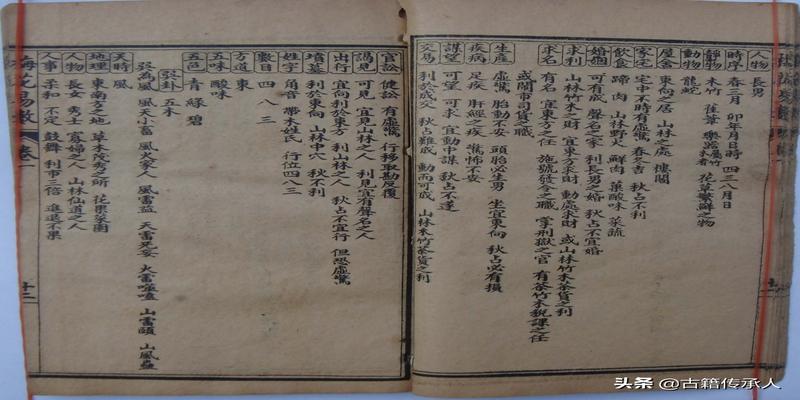 人物 長男
時序 春三月 卯年月日時 四三八月日
靜物 木竹 萑葦 樂器屬竹木 花草繁鮮之物
動物 龍蛇
屋舍 東向之居 山林之處 樓閣
家宅 宅中不時有虛驚 春冬吉 秋占不利
飲食 蹄 肉 山林野火 鮮肉 菓酸味 菜蔬
婚姻 可有成 聲名之家 利長男之婚 秋占不宜婚
求利 山林竹木之財 宜東方求財 動處求財 或山林竹木茶貨之利
求名 有名 宜東方之任 施號發令之職 掌刑獄之官 有茶竹木稅課之任
或閙市司貨之職
生產 虛驚 胎動不安 頭胎必生男 坐宜東向 秋占必有損
疾病 足疾 肝經之疾 驚怖不安
謀望 可望 可求 宜動中謀 秋占不遂
交易 利於成交 秋占難成 動而可成 山林木竹茶貨之利
官訟 健訟 有虛驚 行移取勘反覆
謁見 可見 宜見山林之人 利見宜有聲名之人
出行 宜向利於東方 利山林之人 秋占不宜行 但恐虛驚
墳墓 利於東向 山林中穴 秋不利
姓字 角音 帶木姓氏 行位四八三
數目 四 八 三
方道 東
五味 酸味
五色 青 綠 碧
巽卦 五木
巽為風 風天小畜 風火家人 風雷益 天雷无妄 火雷噬嗑 山雷頤 山風蠱
天時 風
地理 東南方之地 草木茂秀之所 花菓菜園
人物 長女 秀士 寡婦之人 山林仙道之人
人事 柔和 不定 鼓舞 利市三倍 進退不果
梅花易數 卷一 十三
头条 @古籍传承人